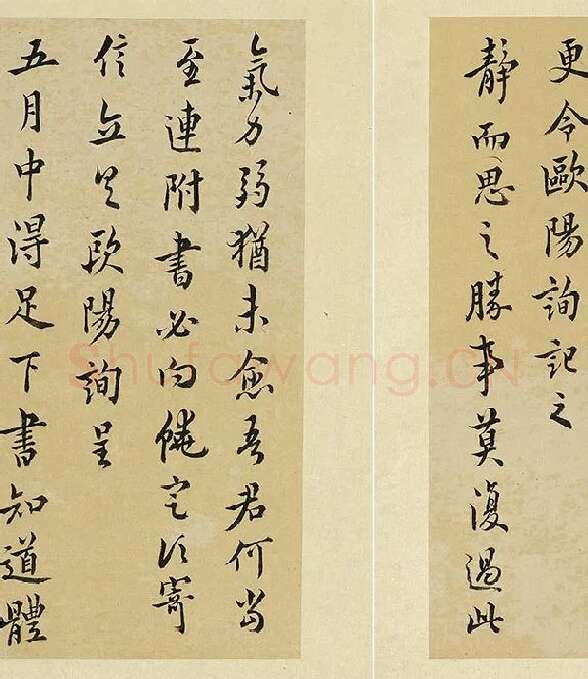 更令歐陽詢記之
靜而思之勝事莫復過此
氣力弱猶未愈吾君何當
至連附書必向饒定須寄
信立具欧陽詢呈
五月中得足下書知道體
Shufawang.CN